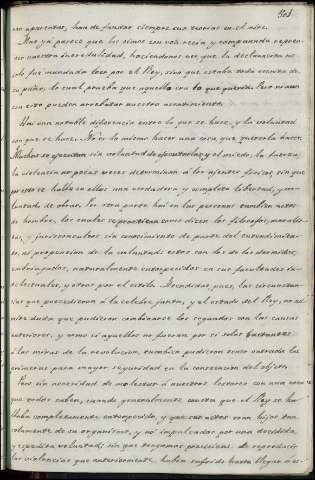 301
con apariencias, han de fundar siempre sus teorias en el aire.
Mas ya parece que les oimos con voz recia y campanuda repren-
der nuestra incredulidad, haciendonos ver, que la declaracion no
solo fue mandada leer por el Rey, sino que estaba toda escrita de
su puño, lo cual prueba que aquello era lo que queria. Pero ni aun
con esto pueden arrebatar nuestro asentimiento.
Hai una notable diferencia entre lo que se hace, y la voluntad
con que se hace. No es lo mismo hacer una cosa, que quererla hacer.
Muchas se ejecutan sin voluntad de ejecutarlas, y el miedo, la fuerza,
la violencia no pocas veces determinan a los ajentes fisicos, sin que
en esto se halle en ellos una verdadera y completa libertad, y vo-
luntad de obrar. Por otra parte hai en las personas tambien actos
de hombre, los cuales se practican como dicen los filosofos, moralis-
tas, y jurisconsultos sin conocimiento de parte del entendimien-
to, ni propension de la voluntad: estos son los de los dormidos,
embriagados, naturalmente entorpecidos en sus facultades in-
telectuales, y otros por el estilo. Atendidas pues, las circunstan-
cias que precedieron a la celebre junta, y el estado del Rey, no ad-
mite duda que pudieron combinarse los segundos con las causas
esteriores, y como si aquellos no fueran por si solos bastantes
a las miras de la revolucion, tambien pudieron tener entrada las
primeras para mayor seguridad en la consecucion del objeto.
Pero sin necesidad de molestar a nuestros lectores con una cosa
que todos saben, cuando generalmente consta que el Rey se ha-
llaba completamente entorpecido, y que sus actos eran hijos tan
solamente de su organismo, y no impulsados por una decidida
y espedita voluntad; sin que tengamos precision de reproducir
las violencias que anteriormente habia sufrido hasta llegar a es-